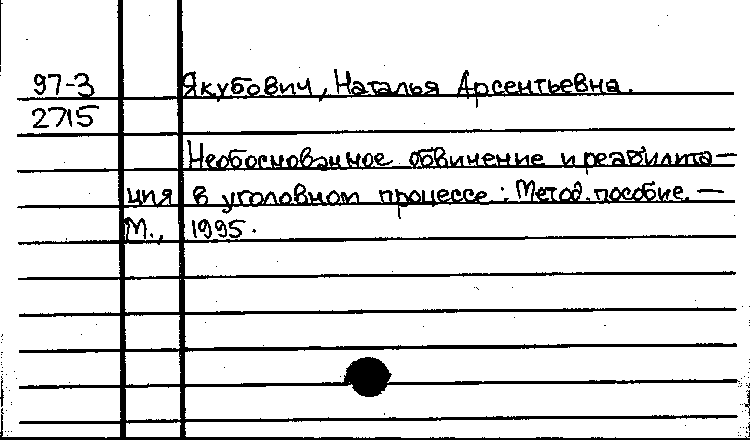 97-3 Якубович, Наталья Арсентьевна.
2715
Необоснованное обвинение и реабилита-
ция в уголовном процессе: Метод. пособие. —
М., 1995.